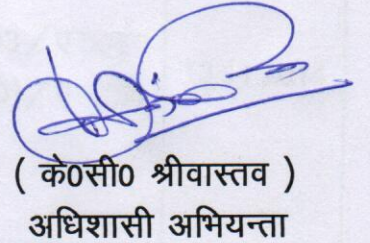 ( के0सी0 श्रीवास्तव )
अधिशासी अभियन्ता